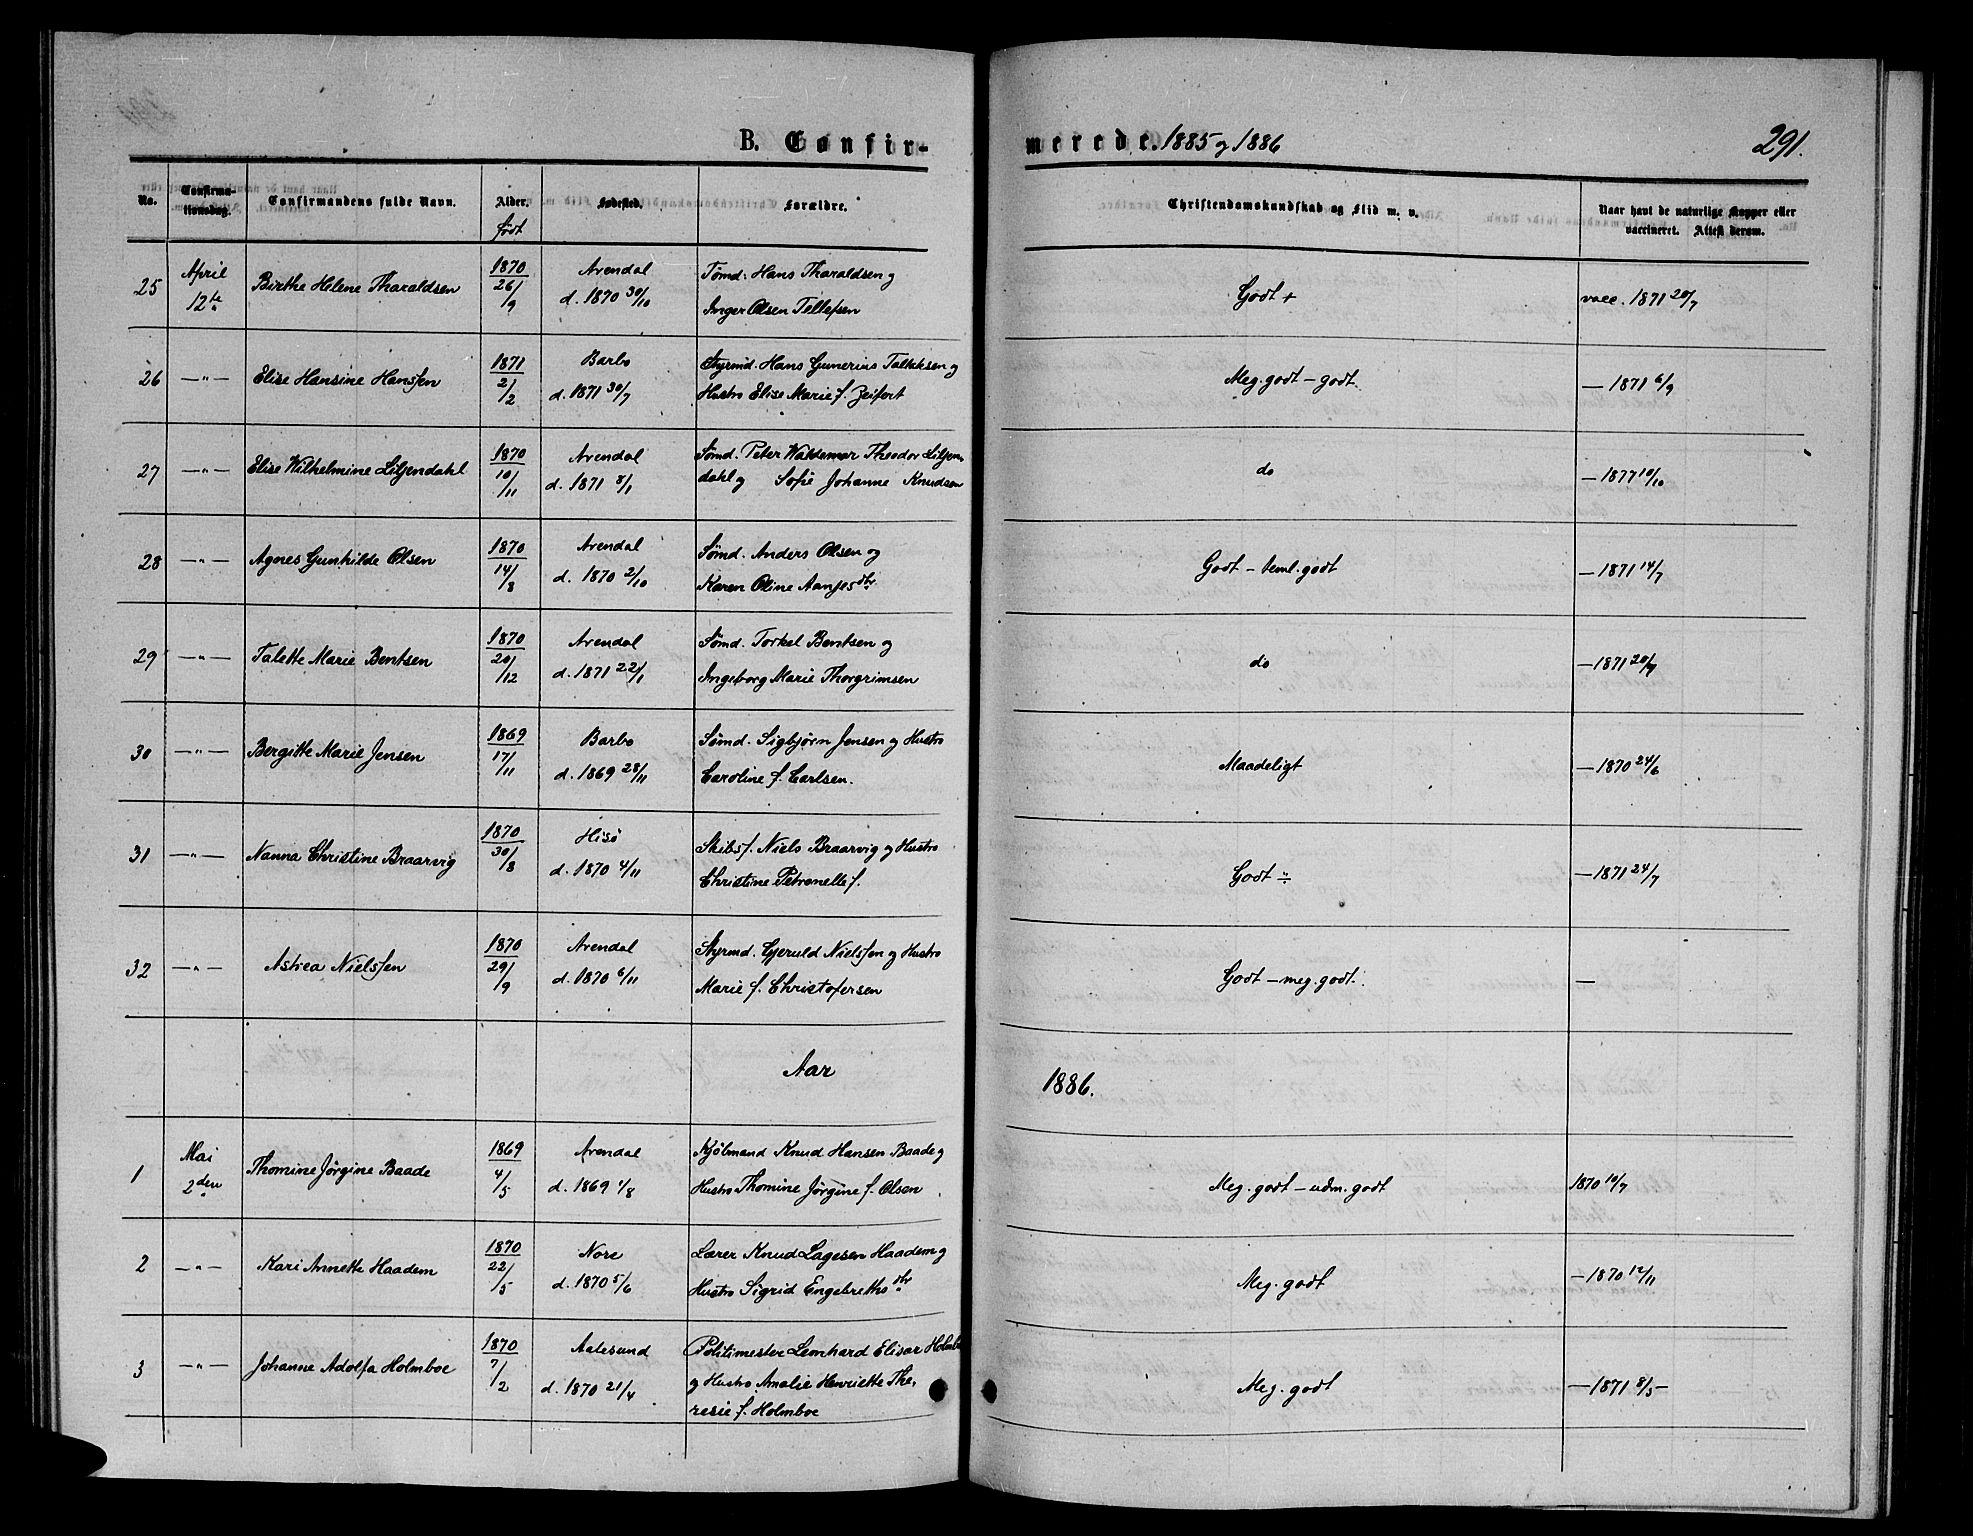 B. Confirmerede. 1885 og 1886
291.
No. Confirmationsdag. Confirmandens fulde Navn. Alder. født Fødested. Forældre. Christendomskundskab og Flid m. v. Naar havt de naturlige Kopper eller vaccineret. Attest derom.
25 April 12te Birthe Helene Tharaldsen 1870 26/9 Arendal d. 1870 30/10 Tømd. Hans Tharaldsen og Inger Olsen Tellefsen Godt + vacc. 1871 20/7
26 —"— Elise Hansine Hanssen 1871 2/2 Barbo d. 1871 30/7 Styrmd. Hans Gunerius Tallaksen og Hustro Elise Marie f. Zeifert Meg. godt – godt — 1871 6/9
27 —"— Elise Wilhelmine Liljendahl 1870 10/11 Arendal d. 1871 8/1 Sømd. Peter Waldemar Theodor Liljendahl og Sofie Johanne Knudsen do — 1877 10/10
28 —"— Agnes Gunhilde Olsen 1870 14/8 Arendal d. 1870 2/10 Sømd. Anders Olsen og Karen Oline Aanjesdtr. Godt – teml. godt — 1871 14/7
29 —"— Talette Marie Bentsen 1870 20/12 Arendal d. 1871 22/1 Sømd. Torkel Bentsen og Ingeborg Marie Thorgrimsen do — 1871 20/7
30 —"— Bergitte Marie Jensen 1869 17/11 Barbo d. 1869 28/11 Sømd. Sigbjørn Jensen og Hustro Caroline f. Carlsen. Maadeligt — 1870 24/6
31 —"— Nanna Christine Braarvig 1870 30/8 Hisø d. 1870 4/11 Skibsf. Niels Braarvig og Hustro Christine Petronelle f. Godt ÷ — 1871 24/7
32 —"— Astrea Nielssen 1870 29/9 Arendal d. 1870 6/11 Styrmd. Gjeruld Nielssen og Hustro Marie f. Christofersen Godt – meg. godt. —
Aar 1886.
1 Mai 2den Thomine Jørgine Baade 1869 4/5 Arendal d. 1869 1/8 Kjølmand Knud Hansen Baade og Hustro Thomine Jørgine f. Olsen Meg. godt – udm. godt 1870 10/7
2 —"— Kari Annette Haadem 1870 22/5 Nore d. 1870 5/6 Lærer Knud Lagesen Haadem og Hustro Sigrid Engebrethsdtr. Meg. godt — 1870 12/11
3 —"— Johanne Adolfa Holmboe 1870 7/2 Aalesund d. 1870 21/4 Politimester Leonhard Elisar Holmbo og Hustro Amalie Henriette Theresie f. Holmboe Meg. godt — 1871 8/5 —